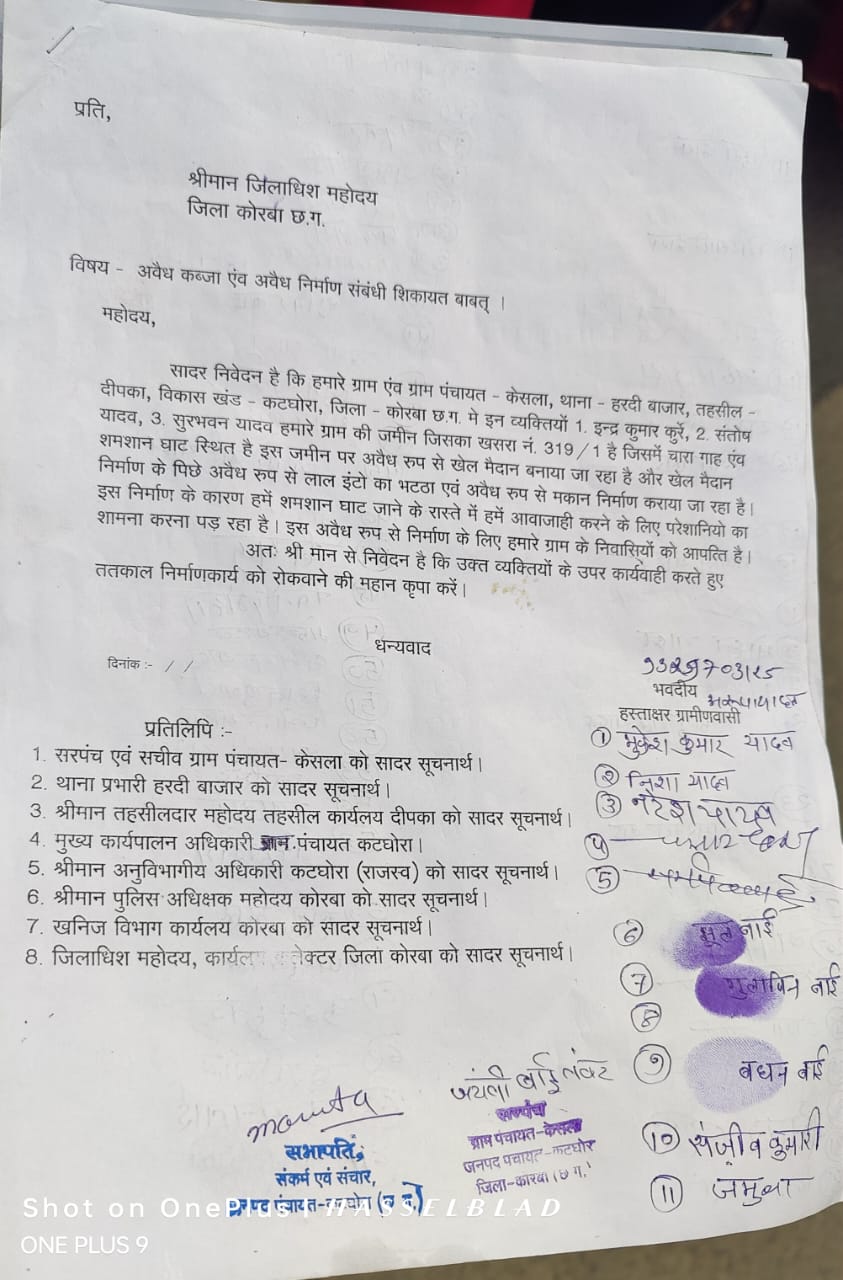 प्रति,
श्रीमान जिलाधिश महोदय
जिला कोरबा छ.ग.
विषय - अवैध कब्जा एंव अवैध निर्माण संबंधी शिकायत बाबत् ।
महोदय,
सादर निवेदन है कि हमारे ग्राम एंव ग्राम पंचायत - केसला, थाना - हरदी बाजार, तहसील -
दीपका, विकास खंड - कटघोरा, जिला - कोरबा छ.ग. मे इन व्यक्तियों 1. इन्द्र कुमार कुर्रे, 2. संतोष
यादव, 3. सुरभवन यादव हमारे ग्राम की जमीन जिसका खसरा नं. 319/1 है जिसमें चारा गाह एंव
शमशान घाट स्थित है इस जमीन पर अवैध रुप से खेल मैदान बनाया जा रहा है और खेल मैदान
निर्माण के पिछे अवैध रुप से लाल इंटो का भटठा एवं अवैध रुप से मकान निर्माण कराया जा रहा है।
इस निर्माण के कारण हमें शमशान घाट जाने के रास्ते में हमें आवाजाही करने के लिए परेशानियो का
शामना करना पड़ रहा है। इस अवैध रुप से निर्माण के लिए हमारे ग्राम के निवासियों को आपत्ति है।
अतः श्री मान से निवेदन है कि उक्त व्यक्तियों के उपर कार्यवाही करते हुए
ततकाल निर्माणकार्य को रोकवाने की महान कृपा करें।
धन्यवाद
दिनांक :- / /
भवदीय
हस्ताक्षर ग्रामीणवासी
① मुकेश कुमार यादव
② निशा यादव
③ नरेश यादव
④
⑤
⑥ बाई
⑦ बाई
⑧
⑨ बधन बाई
⑩ संजीव कुमारी
⑪ जमुना
प्रतिलिपि :-
1. सरपंच एवं सचीव ग्राम पंचायत- केसला को सादर सूचनार्थ।
2. थाना प्रभारी हरदी बाजार को सादर सूचनार्थ।
3. श्रीमान तहसीलदार महोदय तहसील कार्यलय दीपका को सादर सूचनार्थ।
4. मुख्य कार्यपालन अधिकारी पंचायत कटघोरा।
5. श्रीमान अनुविभागीय अधिकारी कटघोरा (राजस्व) को सादर सूचनार्थ।
6. श्रीमान पुलिस अधिक्षक महोदय कोरबा को सादर सूचनार्थ।
7. खनिज विभाग कार्यलय कोरबा को सादर सूचनार्थ।
8. जिलाधिश महोदय, जिला कोरबा को सादर सूचनार्थ।
सभापति,
संकर्म एवं संचार,
जनपद पंचायत-कटघोरा (छ.ग.)
जयंती बाई तंवर
सरपंच
ग्राम पंचायत-केसला
जनपद पंचायत-कटघोर
जिला-कोरबा (छ ग.)
Shot on OnePlus | HASSELBLAD
ONE PLUS 9